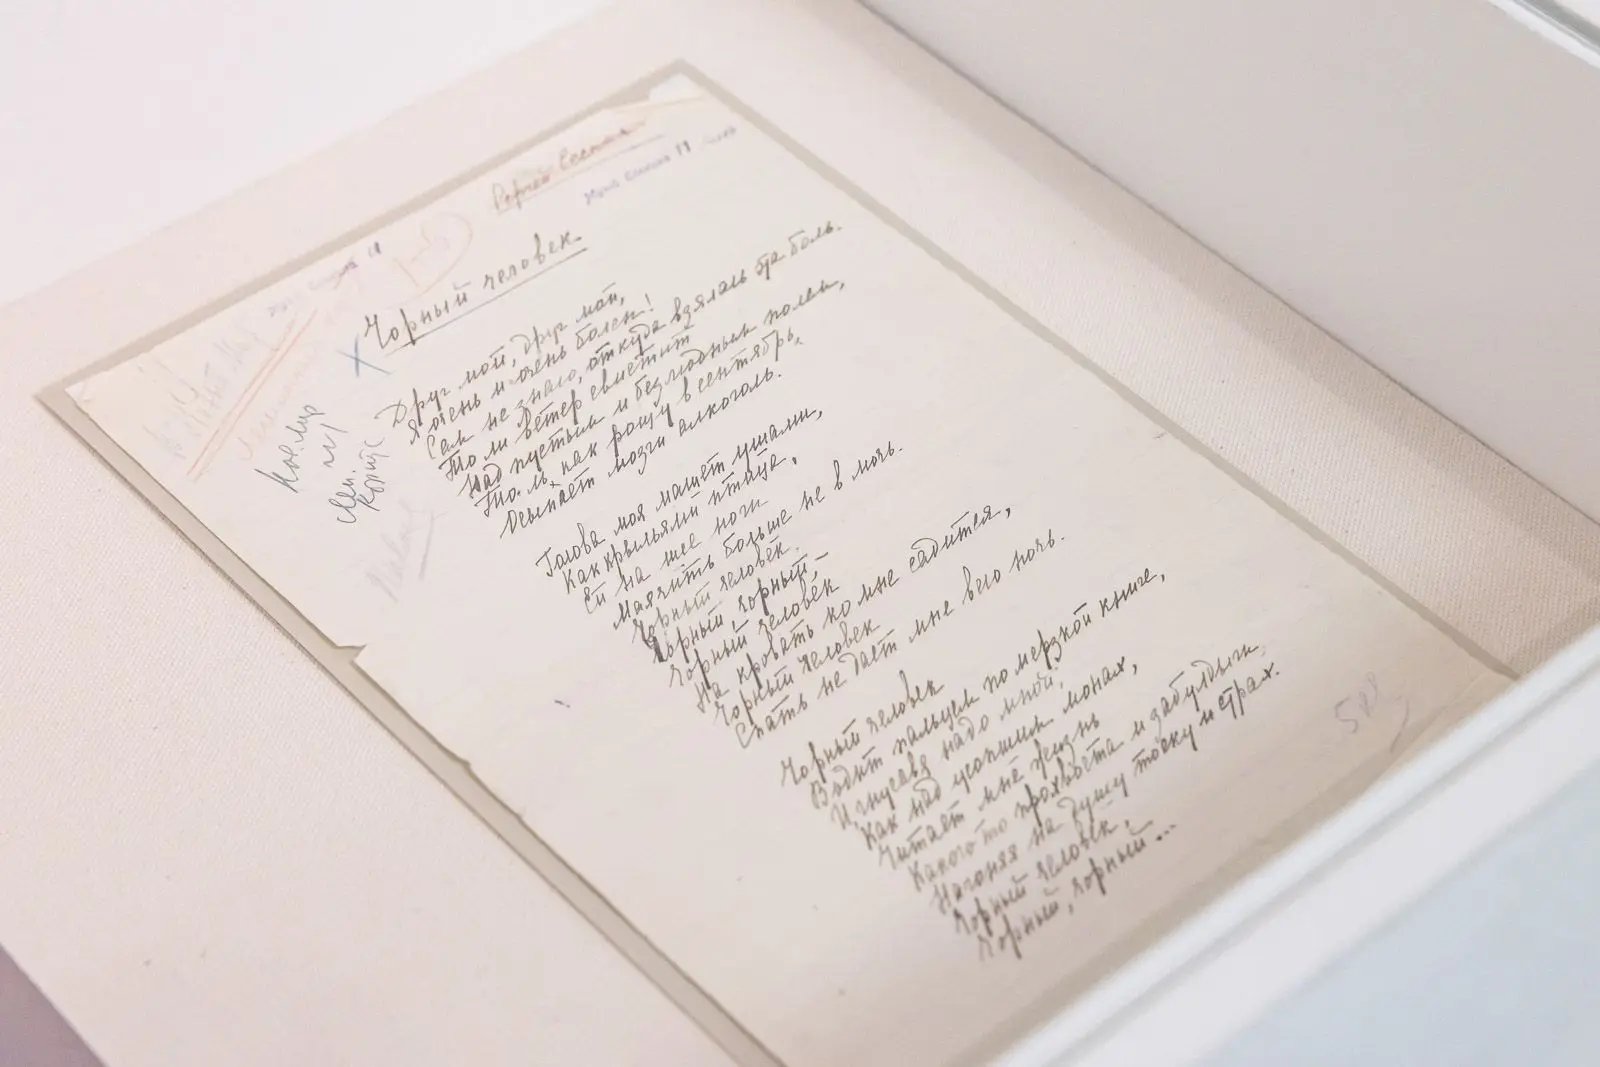 Сергей Есенин
Чорный человек
Друг мой, друг мой,
Я очень и очень болен!
Сам не знаю, откуда взялась эта боль.
То ли ветер свистит
Над пустым и безлюдным полем,
То ль, как рощу в сентябрь,
Осыпает мозги алкоголь.
Голова моя машет ушами,
Как крыльями птица,
Ей на шее ноги
Маячить больше не в мочь.
Чорный человек,
Чорный, чорный,–
Чорный человек
На кровать ко мне садится,
Чорный человек
Спать не дает мне всю ночь.
Чорный человек
Водит пальцем по мерзкой книге,
И, гнусавя надо мной,
Как над усопшим монах,
Читает мне жизнь
Какого то прохвоста и забулдыги,
Нагоняя на душу тоску и страх.
Чорный человек,
Чорный, чорный...